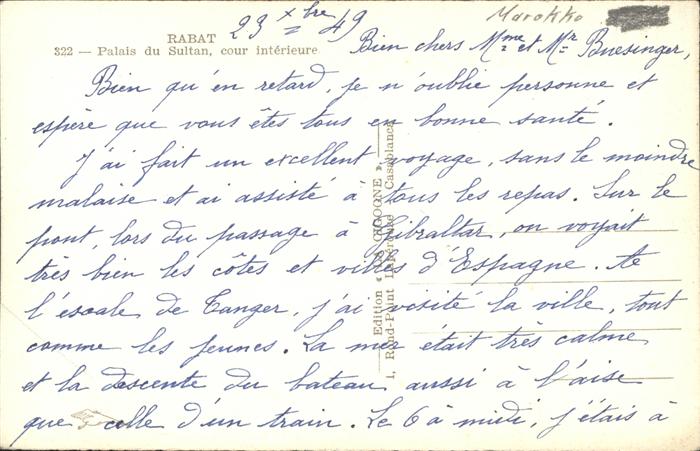 Marokko
RABAT
322 — Palais du Sultan, cour intérieure
23 Xbre 49
Bien chers Mme et Mr Buesinger,
Bien qu'en retard, je n'oublie personne et
espère que vous êtes tous en bonne santé.
J'ai fait un excellent voyage, sans le moindre
malaise et ai assisté à tous les repas. Sur le
pont, lors du passage à Gibraltar, on voyait
très bien les côtes et villes d'Espagne. A
l'escale de Tanger, j'ai visité la ville, tout
comme les jeunes. La mer était très calme
et la descente du bateau aussi à l'aise
que celle d'un train. Le 6 à midi, j'étais à
Edition « LA CIGOGNE »,
1, Rond-Point Casablanca